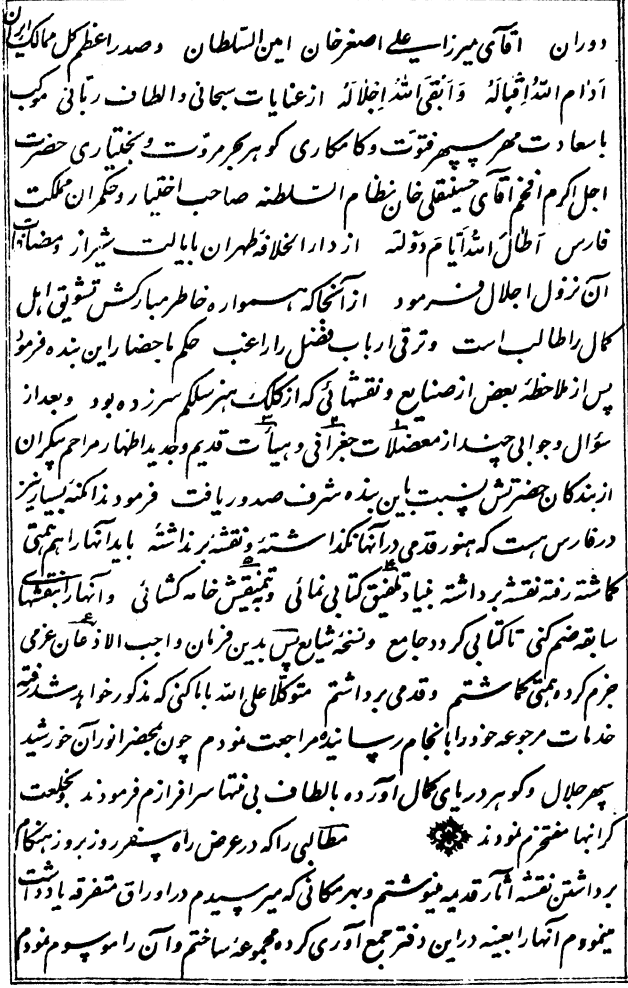 دوران آقای میرزا علی اصغر خان امین السّلطان و صدر اعظم کل ممالک ایران
اَدٰامَ اللهُ اِقْبٰالَهُ وَ اَبْقَی اللهُ اِجْلٰالَهُ از عنایات سبحانی و الطاف ربّانی موکب
با سعادت مهر سپهر فتوّت و کامکاری گوهر بحر مروّت و بختیاری حضرت
اجل اکرم افخم آقای حسینقلی خان نظام السلطنه صاحب اختیار و حکمران مملکت
فارس اَطالَ اللهُ اَیّامَ دَوْلَتِه از دار الخلافه طهران بایالت شیراز و مضافات
آن نزول اجلال فرمود از آنجا که همواره خاطر مبارکش تشویق اهل
کمال را طالب است و ترقی ارباب فضل را راغب حکم باحضار این بنده فرمود
پس از ملاحظهٔ بعض از صنایع و نقشهائی که از کلک هنر سلکم سر زده بود و بعد از
سؤال و جوابی چند از معضلات جغرافی و هیأت قدیم و جدید اظهار مراحم بیکران
از بندکان حضرتش نسبت باین بنده شرف صدور یافت فرمودند امکنهٔ بسیار نیز
در فارس هست که هنوز قدمی در آنها نگذاشته و نقشه برنداشتهٔ باید آنها را هم همتی
گماشته رفته نقشه برداشته بنیاد تلفیق کتابی نمائی و تنمیقش خامه کشائی و آنها را بنقشهای
سابقه ضم کنی تا کتابی کردد جامع و نسخهٔ شایع پس بدین فرمان واجب الاذعان عزمی
جزم کرده همتی گماشتم و قدمی برداشتم متوکلاً علی الله باماکنی که مذکور خواهد شد رفته
خدمات مرجوعه خود را بانجام رسانیده مراجعت نمودم چون بمحضر انور آن خورشید
سپهر جلال و گوهر دریای کمال آورده بالطاف بی منتها سرافرازم فرمودند و بخلعت
کرانبها مفتخرم نمودند مطالبی را که در عرض راه سفر روز بروز هنکام
برداشتن نقشه آثار قدیمه مینوشتم و بهر مکانی که میرسیدم در اوراق متفرقه یادداشت
مینمودم آنها را بعینه در این دفتر جمع آوری کرده مجموعهٔ ساختم و آن را موسوم نمودم